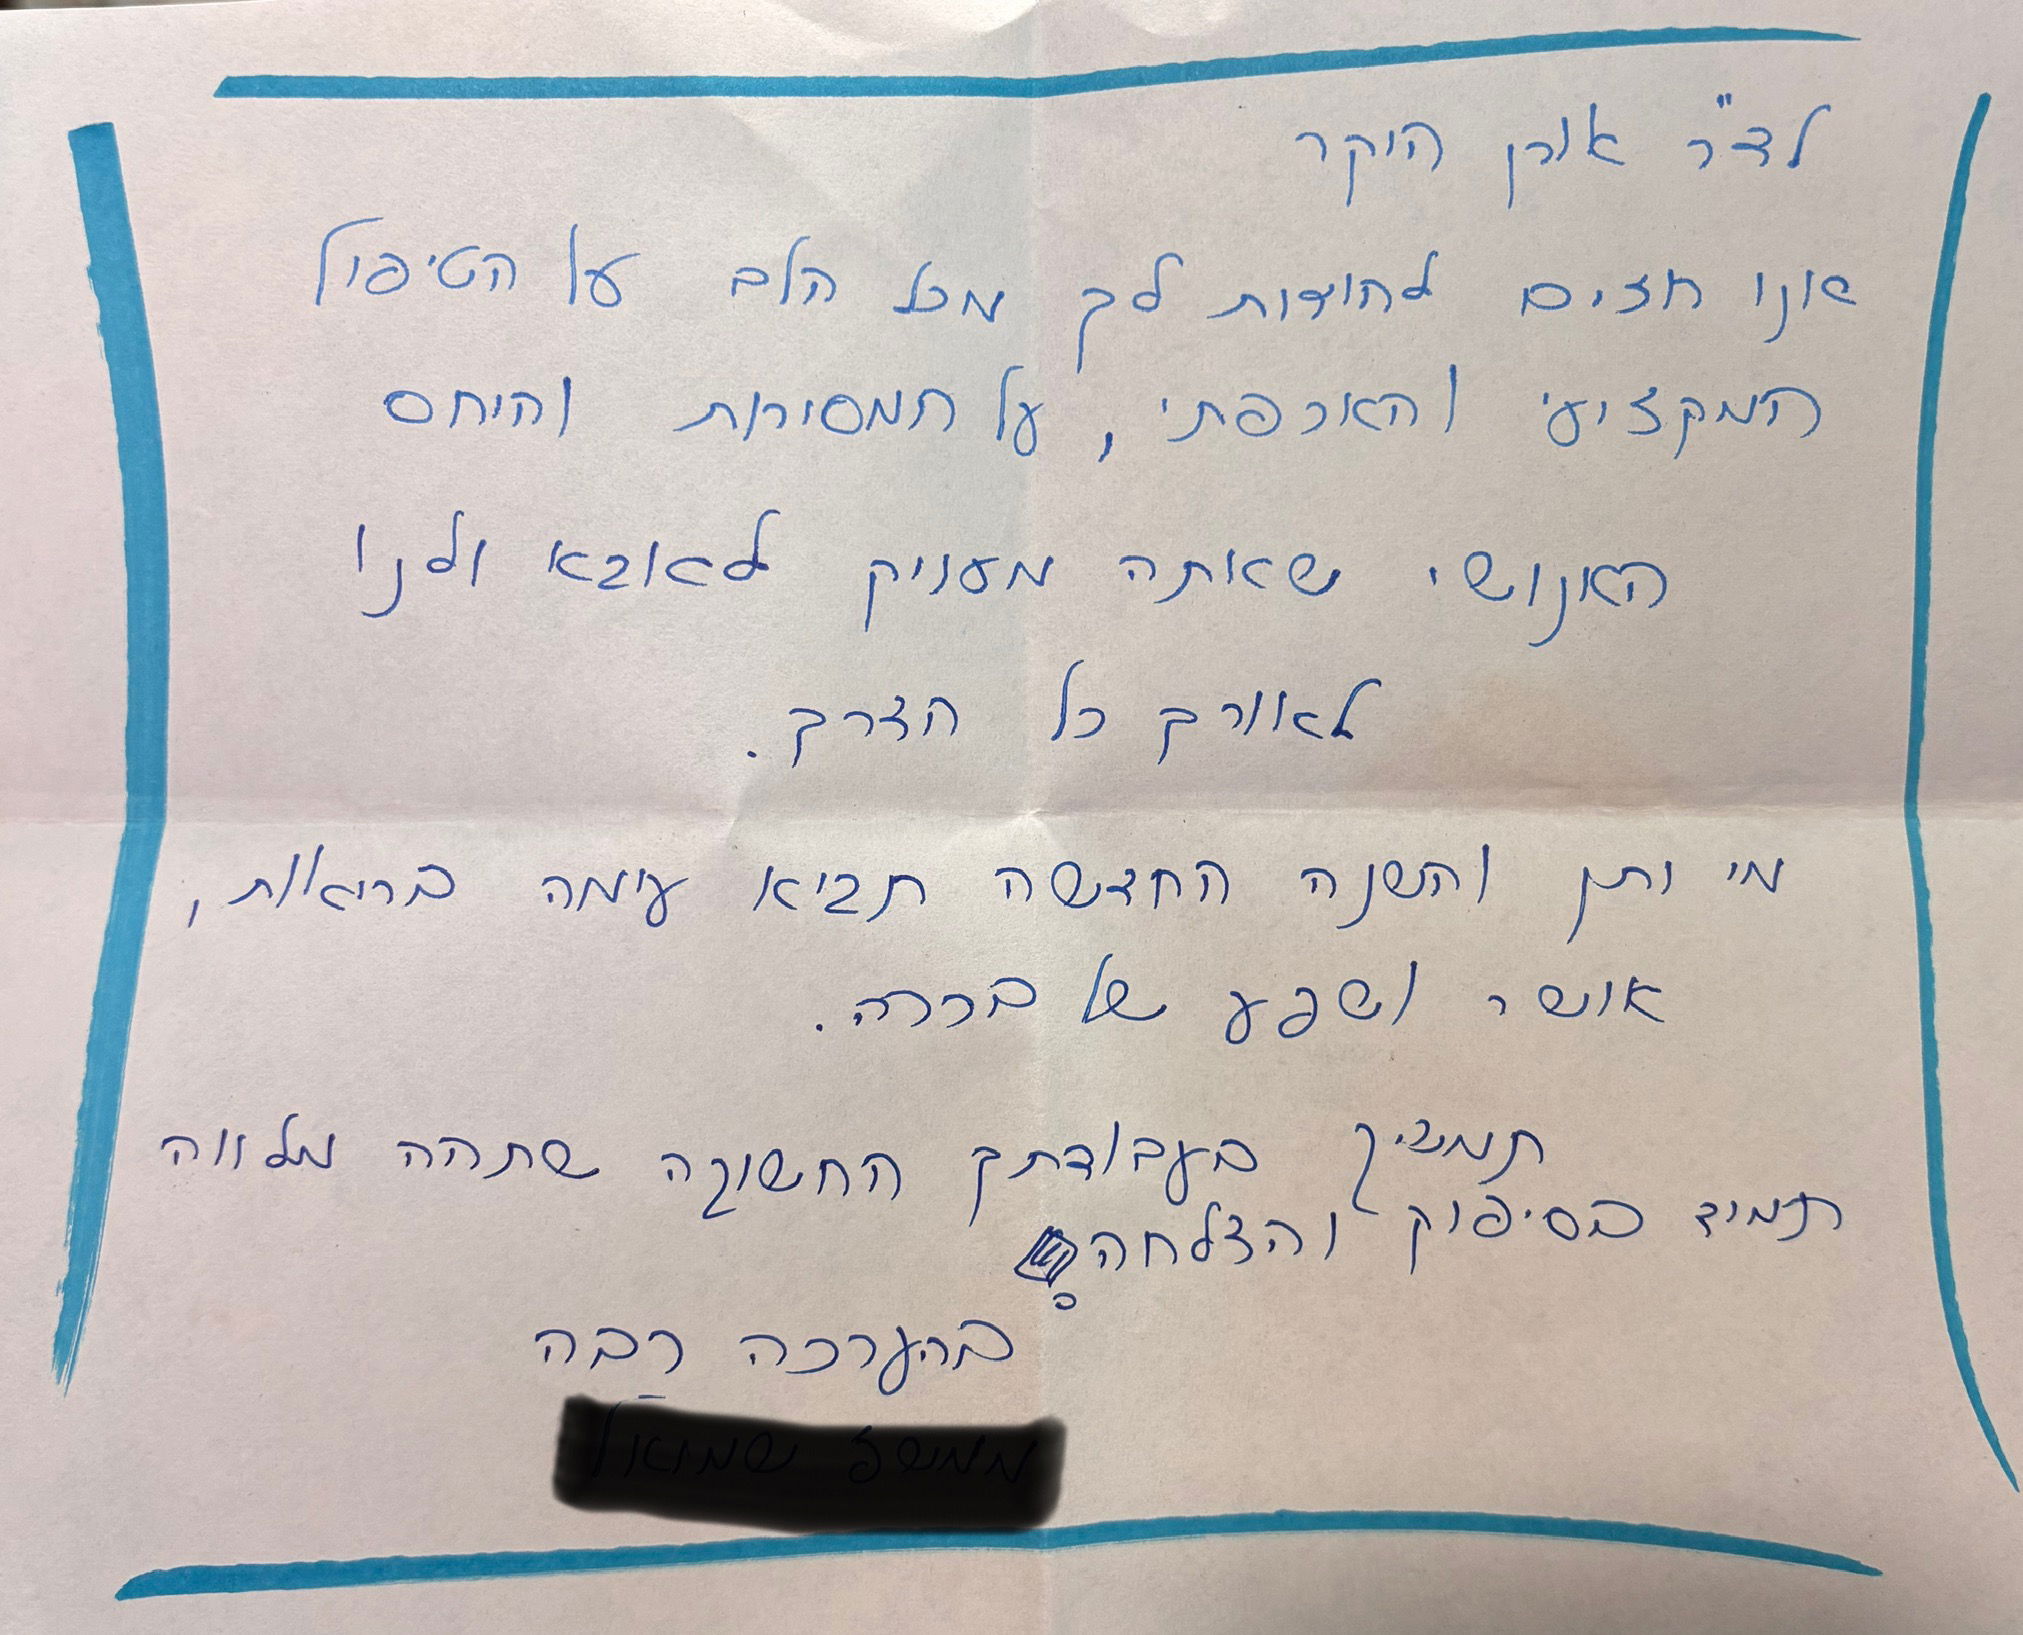 לד"ר אורן היקר
שונו חזים להודות לך מכל הלב על הטיפול
המקצועי והאכפתי, על המסירות והיחס
האנושי שאתה מעניק לאבא ולנו
לאורך כל הדרך.
מי ותן והשנה החדשה תביא עימה בריאות,
אושר ושפע של ברכה.
תמשיך בעבודתך החשובה שתהה מלווה
תמיד בסיפוק והצלחה
בהערכה רבה